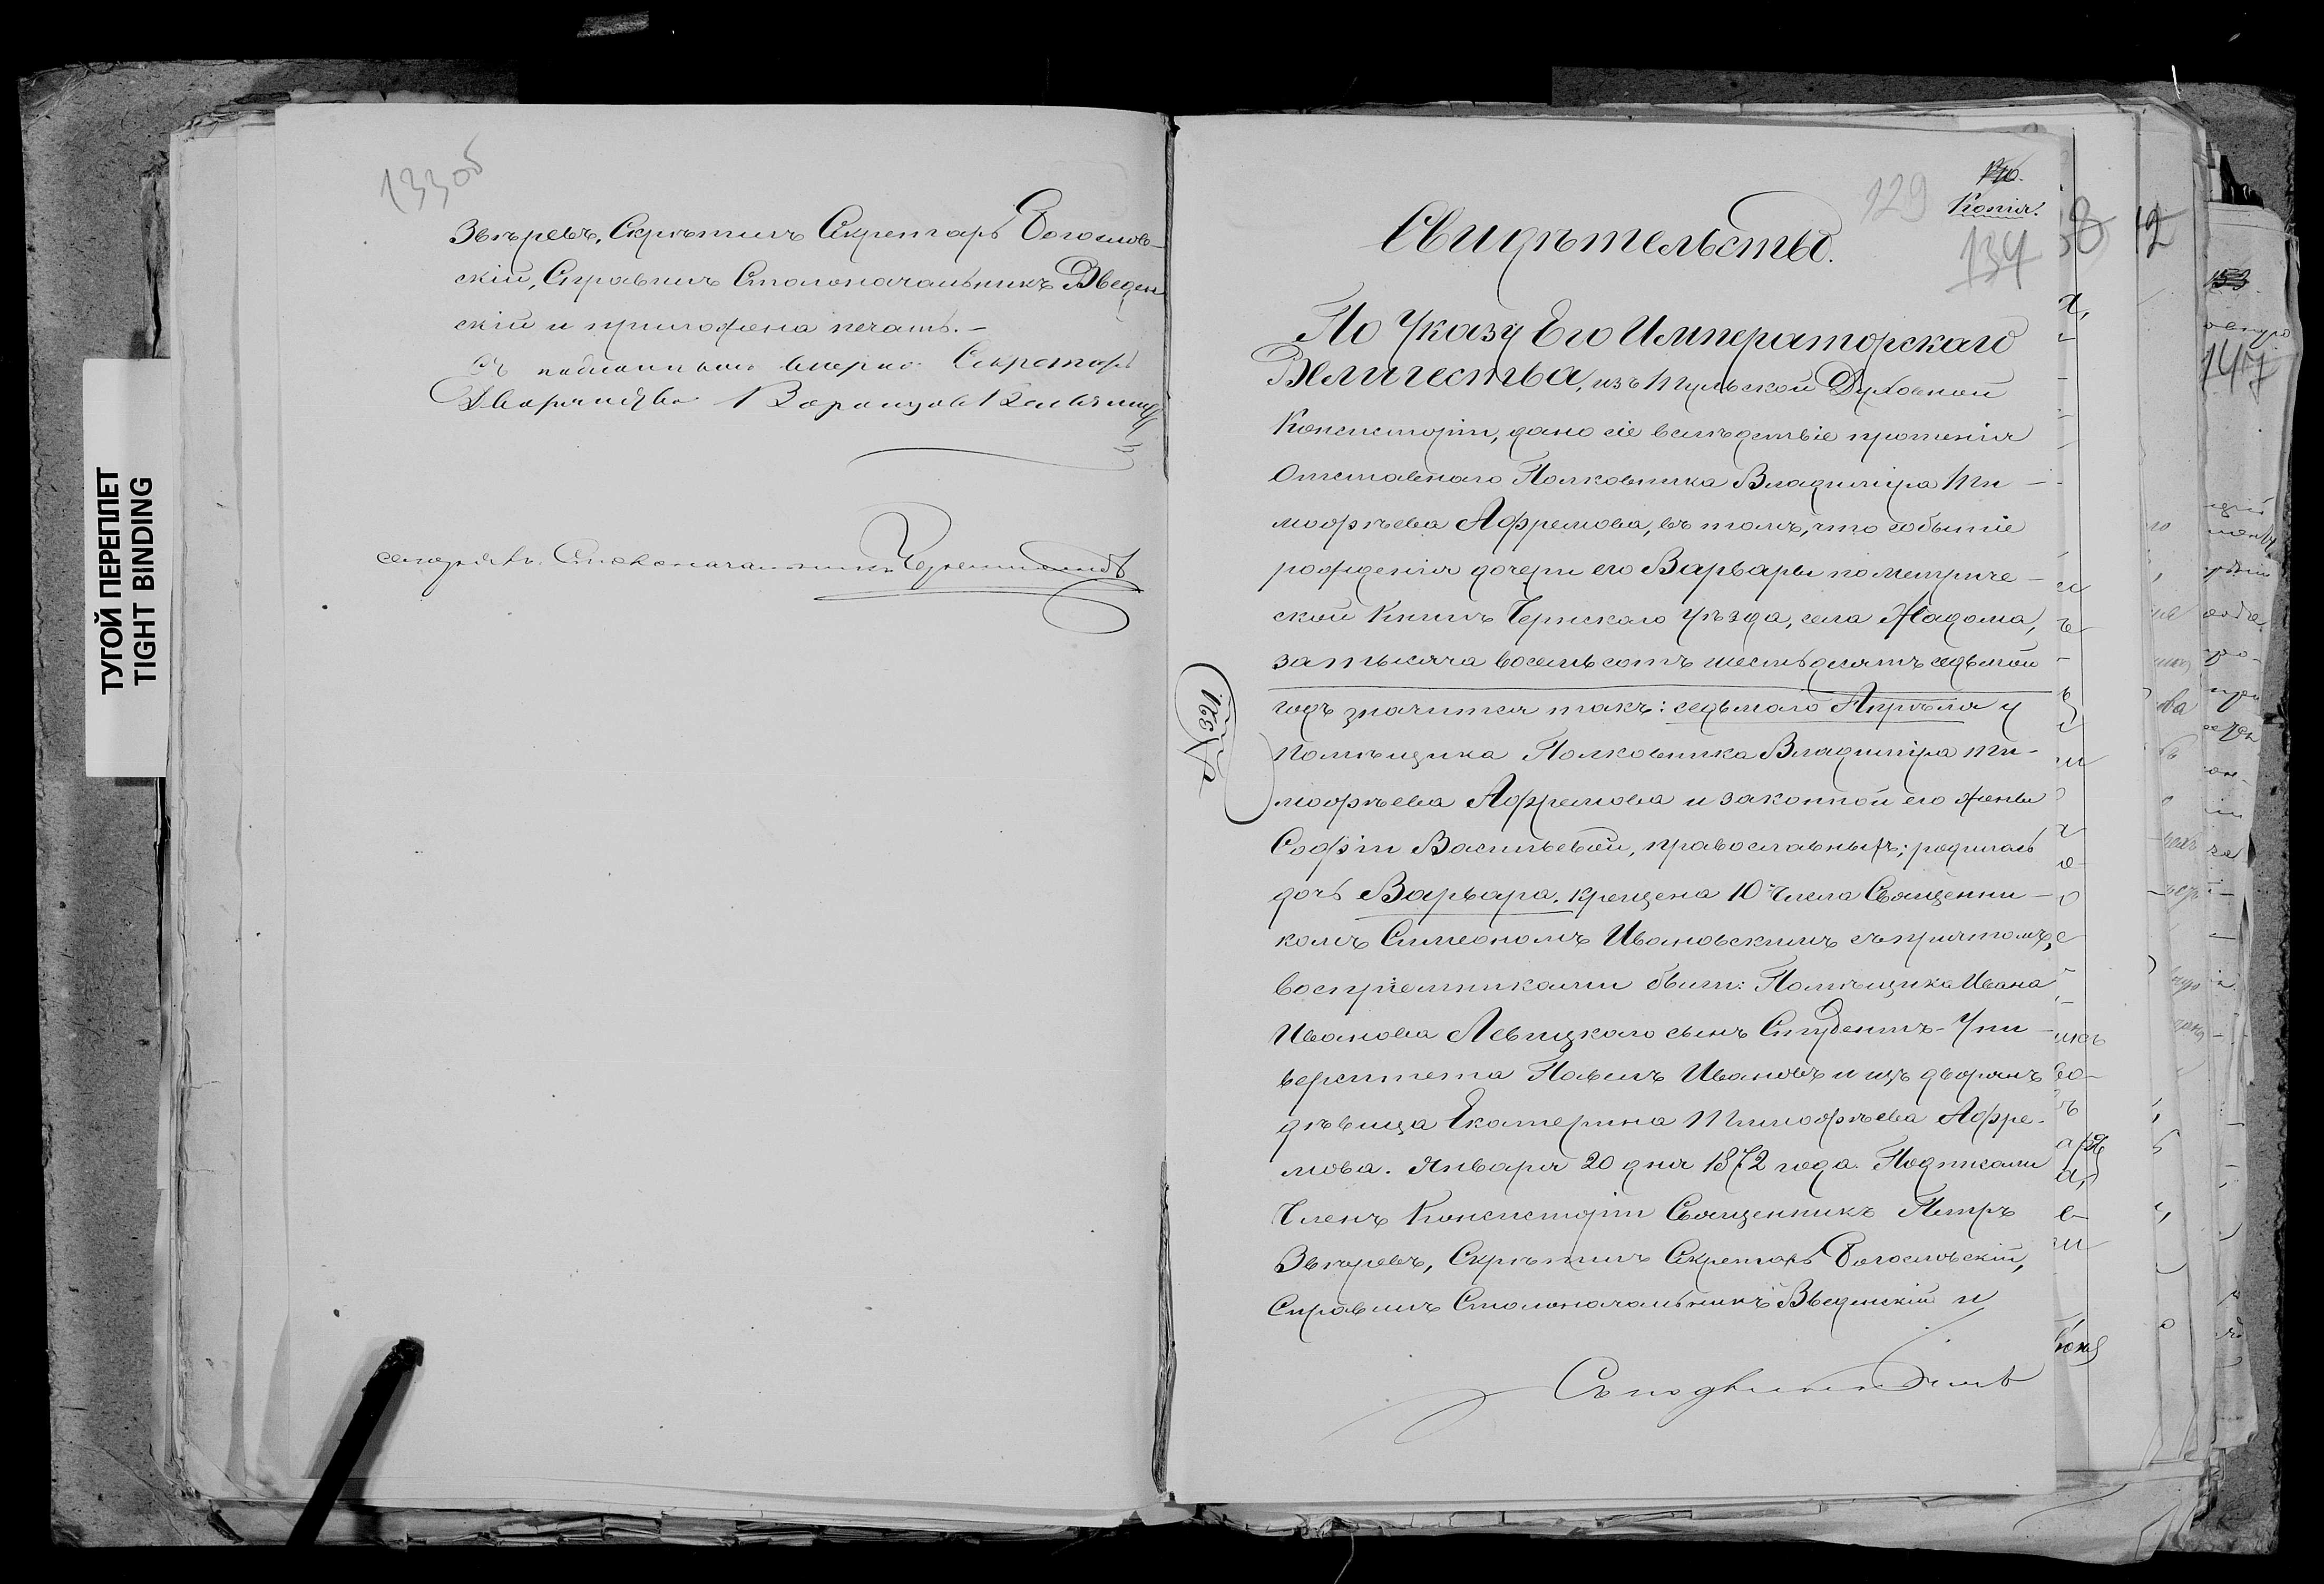 133 об
Звѣревъ, Скрѣпилъ Секретарь Богослов-
скій, Справилъ Столоначальникъ Введен
скій и приложена печать. –
Съ подлиннымъ вѣрно: Секретарь
Дворянства Воронцовъ Вельяминовъ
Столоначальникъ
ТУГОЙ ПЕРЕПЛЕТ
TIGHT BINDING
129
Копія.
134
Свидѣтельство.
По Указу Его Императорскаго
Величества, изъ Тульской Духовной
Консисторіи, дано сіе вслѣдствіе прошенія
Отставнаго Полковника Владиміра Ти–
мофѣева Афремова, въ томъ, что событіе
рожденія дочери его Варвары по метриче–
ской книгѣ Чернскаго уѣзда, села Жадома,
за тысяча восемьсотъ шестьдесятъ седьмой
годъ значится такъ: седьмаго Апрѣля у
помѣщика Полковника Владиміра Ти-
мофѣева Афремова и законной его жены
Софіи Васильевой, православныхъ; родилась
дочь Варвара, крещена 10 числа Священни–
комъ Симеономъ Ивановскимъ съ причтомъ,
воспріемниками были: Помѣщика Ивана
Иванова Левицкаго сынъ Студентъ-Уни–
верситета Павелъ Ивановъ и изъ дворянъ
дѣвица Екатерина Тимофѣева Афре-
мова. Января 20 дня 1872 года. Подписали
Членъ Консисторіи Священникъ Петръ
Звѣревъ, Скрѣпилъ Секретарь Богословскій,
Справилъ Столоначальникъ Введенскій и
Съ подлиннымъ
123
153
147